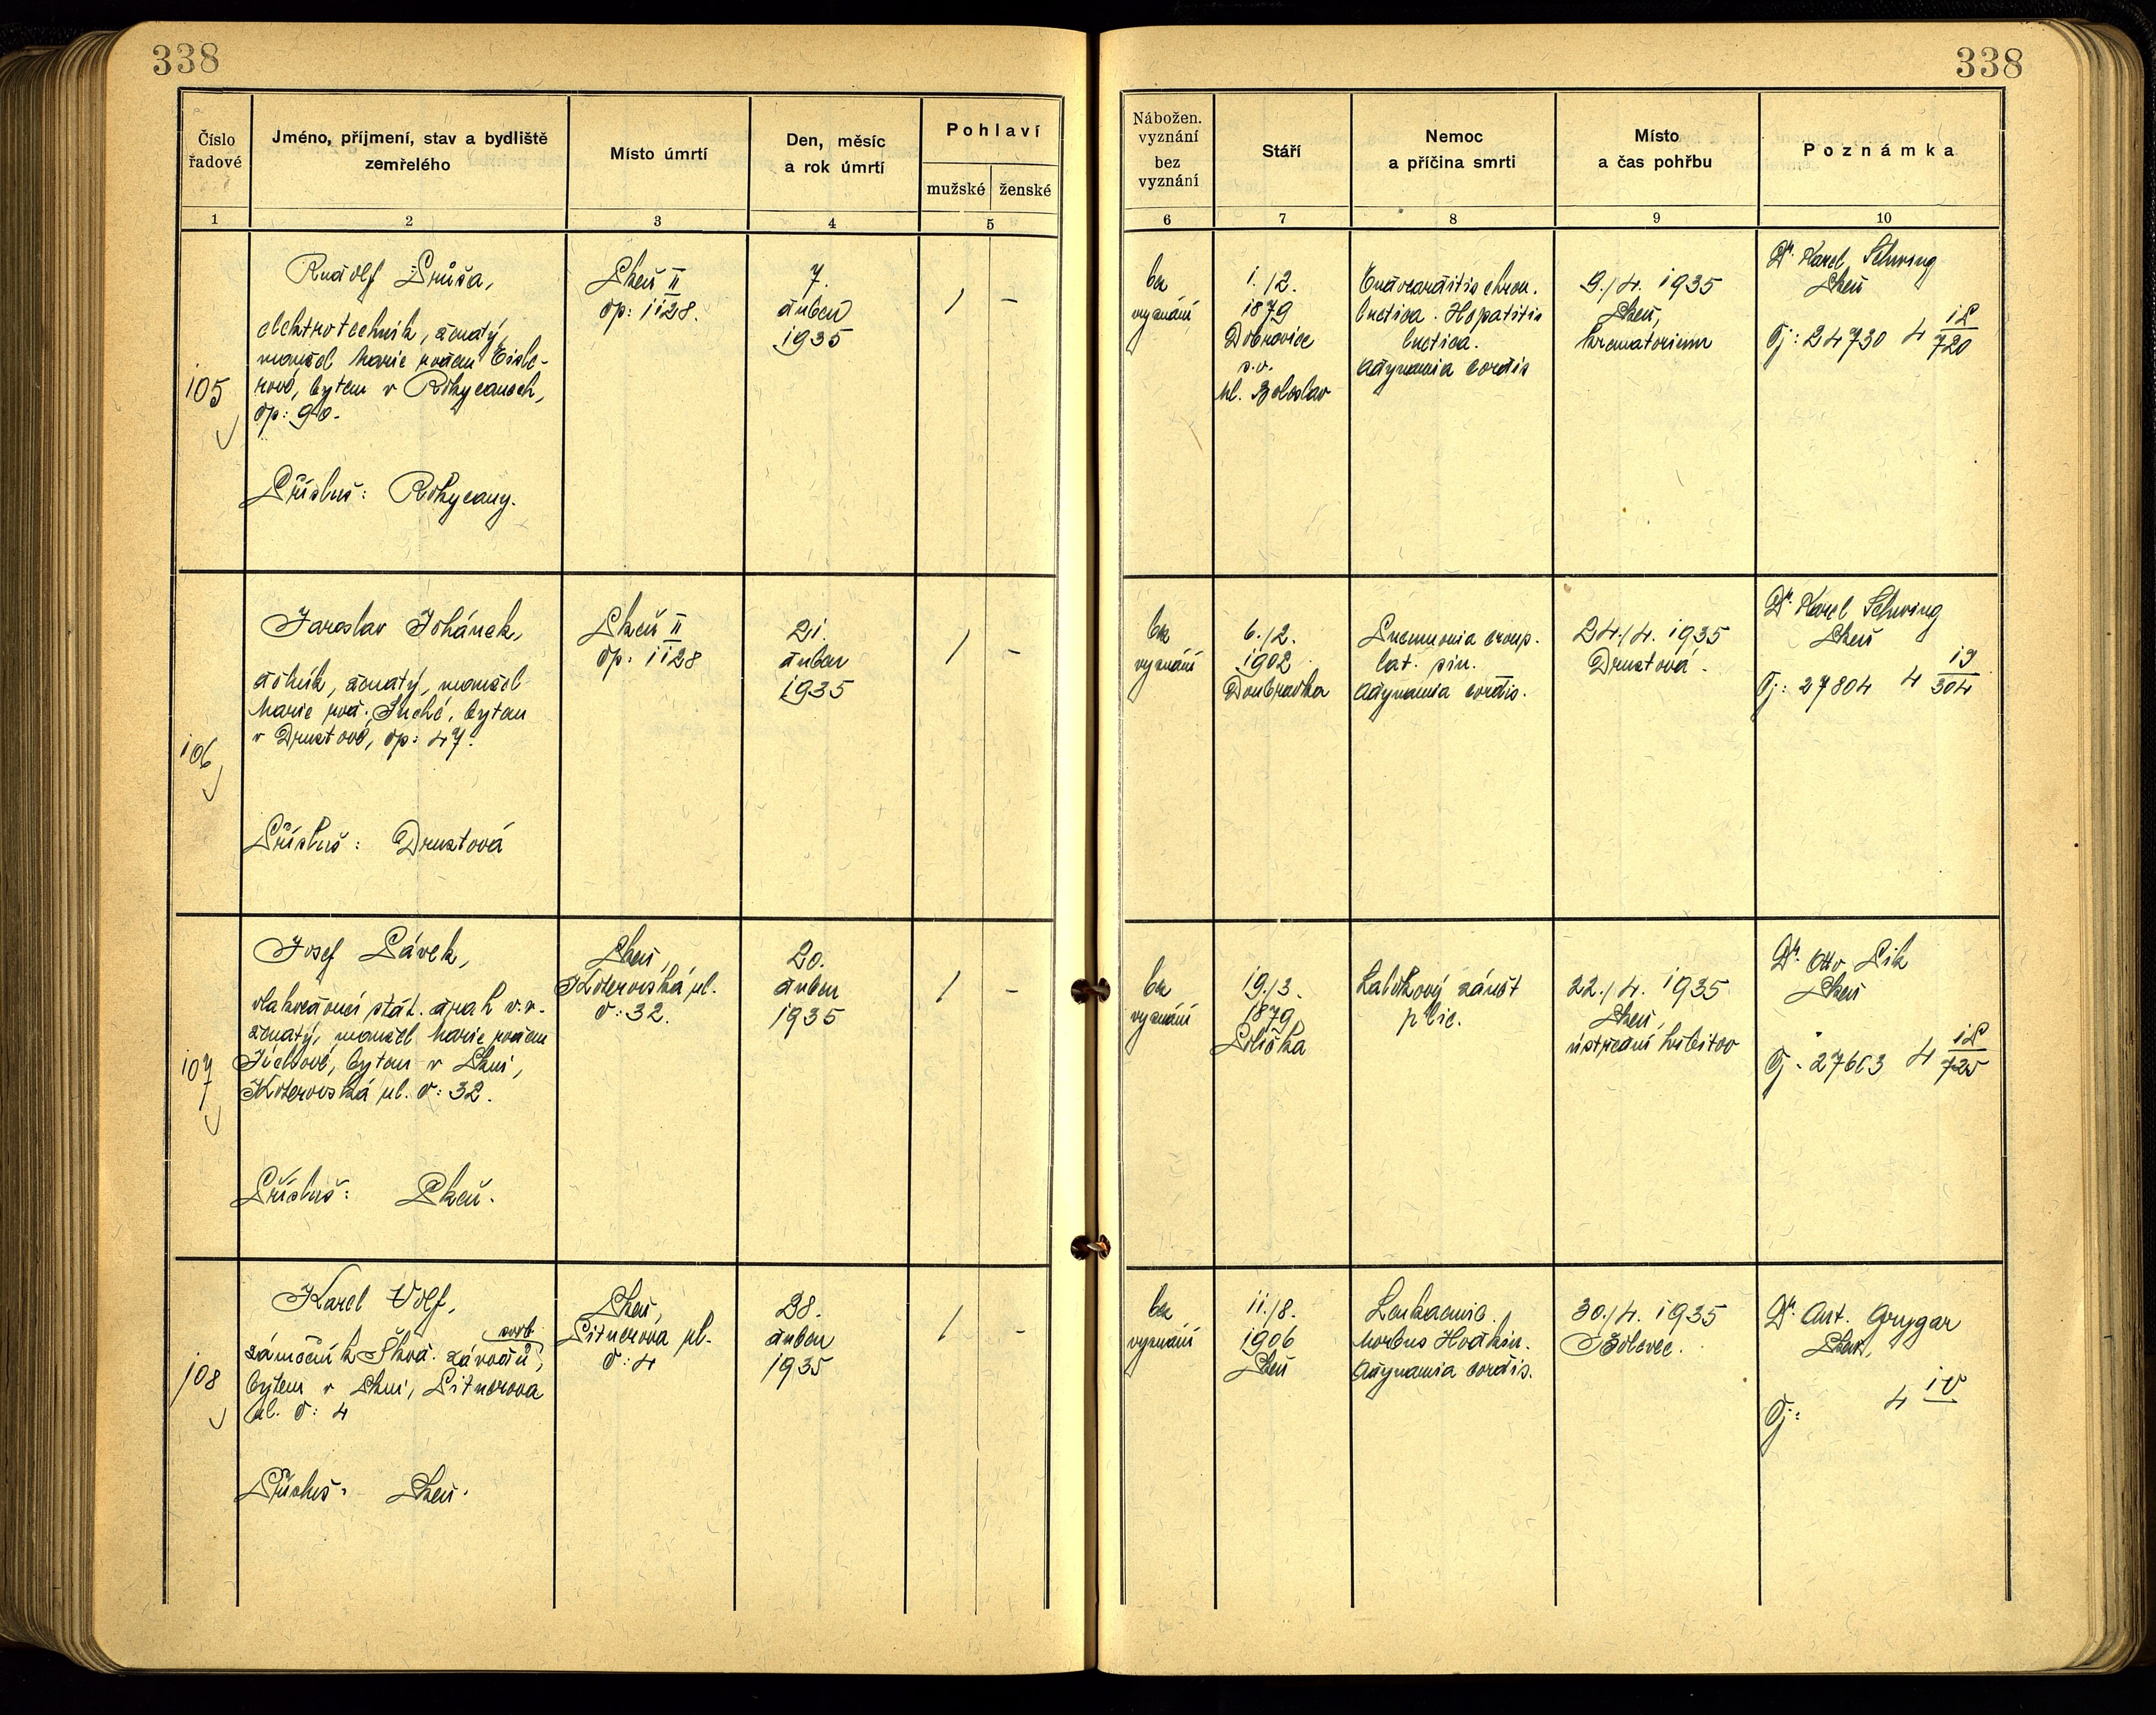 338
338
Číslo řadové
Jméno, příjmení, stav a bydliště
zemřelého
Místo úmrtí
Den, měsíc
a rok úmrtí
Pohlaví
mužské
ženské
Nábožen.
vyznání
bez
vyznání
Stáří
Nemoc
a příčina smrti
Místo
a čas pohřbu
Poznámka
1
2
3
4
5
6
7
8
9
10
105
Rudolf Průša,
elektrotechnik, ženatý,
manžel Marie rozen Eisle-
rové, bytem v Rokycanech,
čp: 90.
Přísluš: Rokycany.
Plzeň II
čp: 1128.
7.
duben
1935
/
–
bez
vyznání
1./2.
1879
Dobrovice
s.o.
Ml. Boleslav
Endocarditis chron.
luetica. Hepatitis
luetica.
adynamia cordis
9./4. 1935
Plzeň,
krematorium
Dr. Karel Schwing
Plzeň
Čj: 24730 4 12/720
106
Jaroslav Johánek,
dělník, ženatý, manžel
Marie roz. Suché, bytem
v Druztové, čp: 47.
Přísluš: Druztová
Plzeň II
čp: 1128
21.
duben
1935
/
–
bez
vyznání
6./2.
1902
Doubravka
Pneumonia croup.
lat. sin.
adynamia cordis.
24./4. 1935
Druztová.
Dr. Karel Schwing
Plzeň
Čj: 27804 4 19/304
107
Josef Pávek,
vlakvedoucí stát. drah v.v.
ženatý, manžel Marie rozen
bytem v Plzni,
Koterovská ul. č: 32.
Přísluš: Plzeň.
Plzeň,
Koterovská ul.
č: 32.
20.
duben
1935
/
–
bez
vyznání
19./3.
1879
Polička
Lalokový zánět
plic.
22./4. 1935
Plzeň,
ústřední hřbitov
Dr. Otto Pik
Plzeň
Čj. 27603 4 12/725
108
Karel Volf,
svob.
zámečník Škod. závodů,
bytem v Plzni, Pitnerova
ul. č: 4
Přísluš: Plzeň.
Plzeň,
Pitnerova ul.
č: 4
28.
duben
1935
/
–
bez
vyznání
11./8.
1906
Plzeň
Leukaemie.
Morbus Hodkin.
Adynamia cordis.
30./4. 1935
Bolevec.
Dr. Ant. Grygar
Plzeň,
Čj: 4